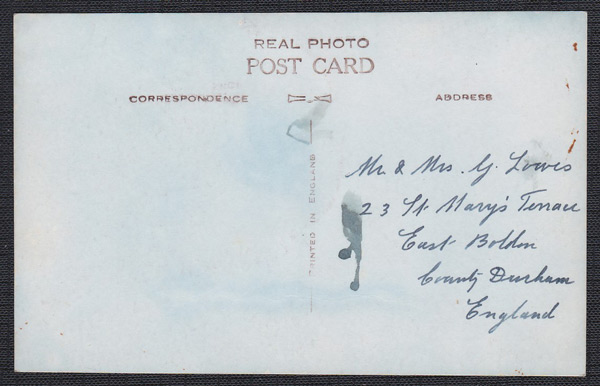 REAL PHOTO
POST CARD
CORRESPONDENCE
ADDRESS
PRINTED IN ENGLAND
Mr. & Mrs. G. Lowes
23 St. Mary's Terrace
East Boldon
County Durham
England